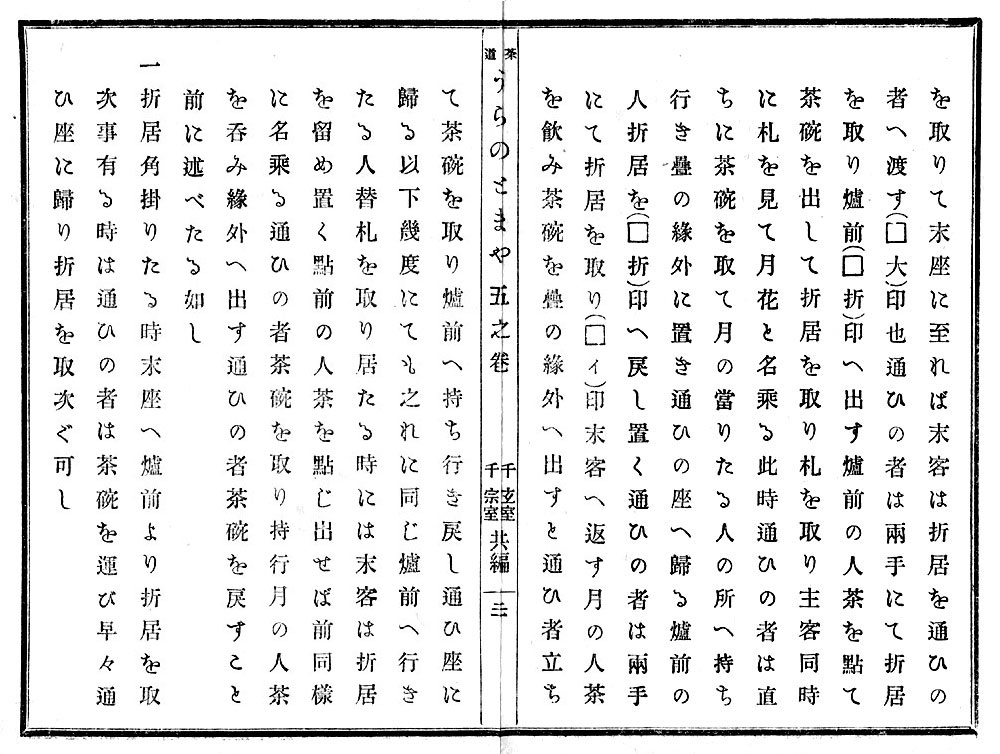 を取りて末座に至れば末客は折居を通ひの
者へ渡す(□大)印也通ひの者は兩手にて折居
を取り爐前(□折)印へ出す爐前の人茶を點て
茶碗を出して折居を取り札を取り主客同時
に札を見て月花と名乘る此時通ひの者は直
ちに茶碗を取て月の當りたる人の所へ持ち
行き疊の緣外に置き通ひの座へ歸る爐前の
人折居を(□折)印へ戾し置く通ひの者は兩手
にて折居を取り(□イ)印末客へ返す月の人茶
を飮み茶碗を疊の緣外へ出すと通ひ者立ち
茶道 うらのとまや 五之卷 千玄室 千宗室 共編 二
て茶碗を取り爐前へ持ち行き戾し通ひ座に
歸る以下幾度にても之れに同じ爐前へ行き
たる人替札を取り居たる時には末客は折居
を留め置く點前の人茶を點じ出せば前同樣
に名乘る通ひの者茶碗を取り持行月の人茶
を呑み緣外へ出す通ひの者茶碗を戾すこと
前に述べたる如し
一折居角掛りたる時末座へ爐前より折居を取
次事有る時は通ひの者は茶碗を運び早々通
ひ座に歸り折居を取次ぐ可し